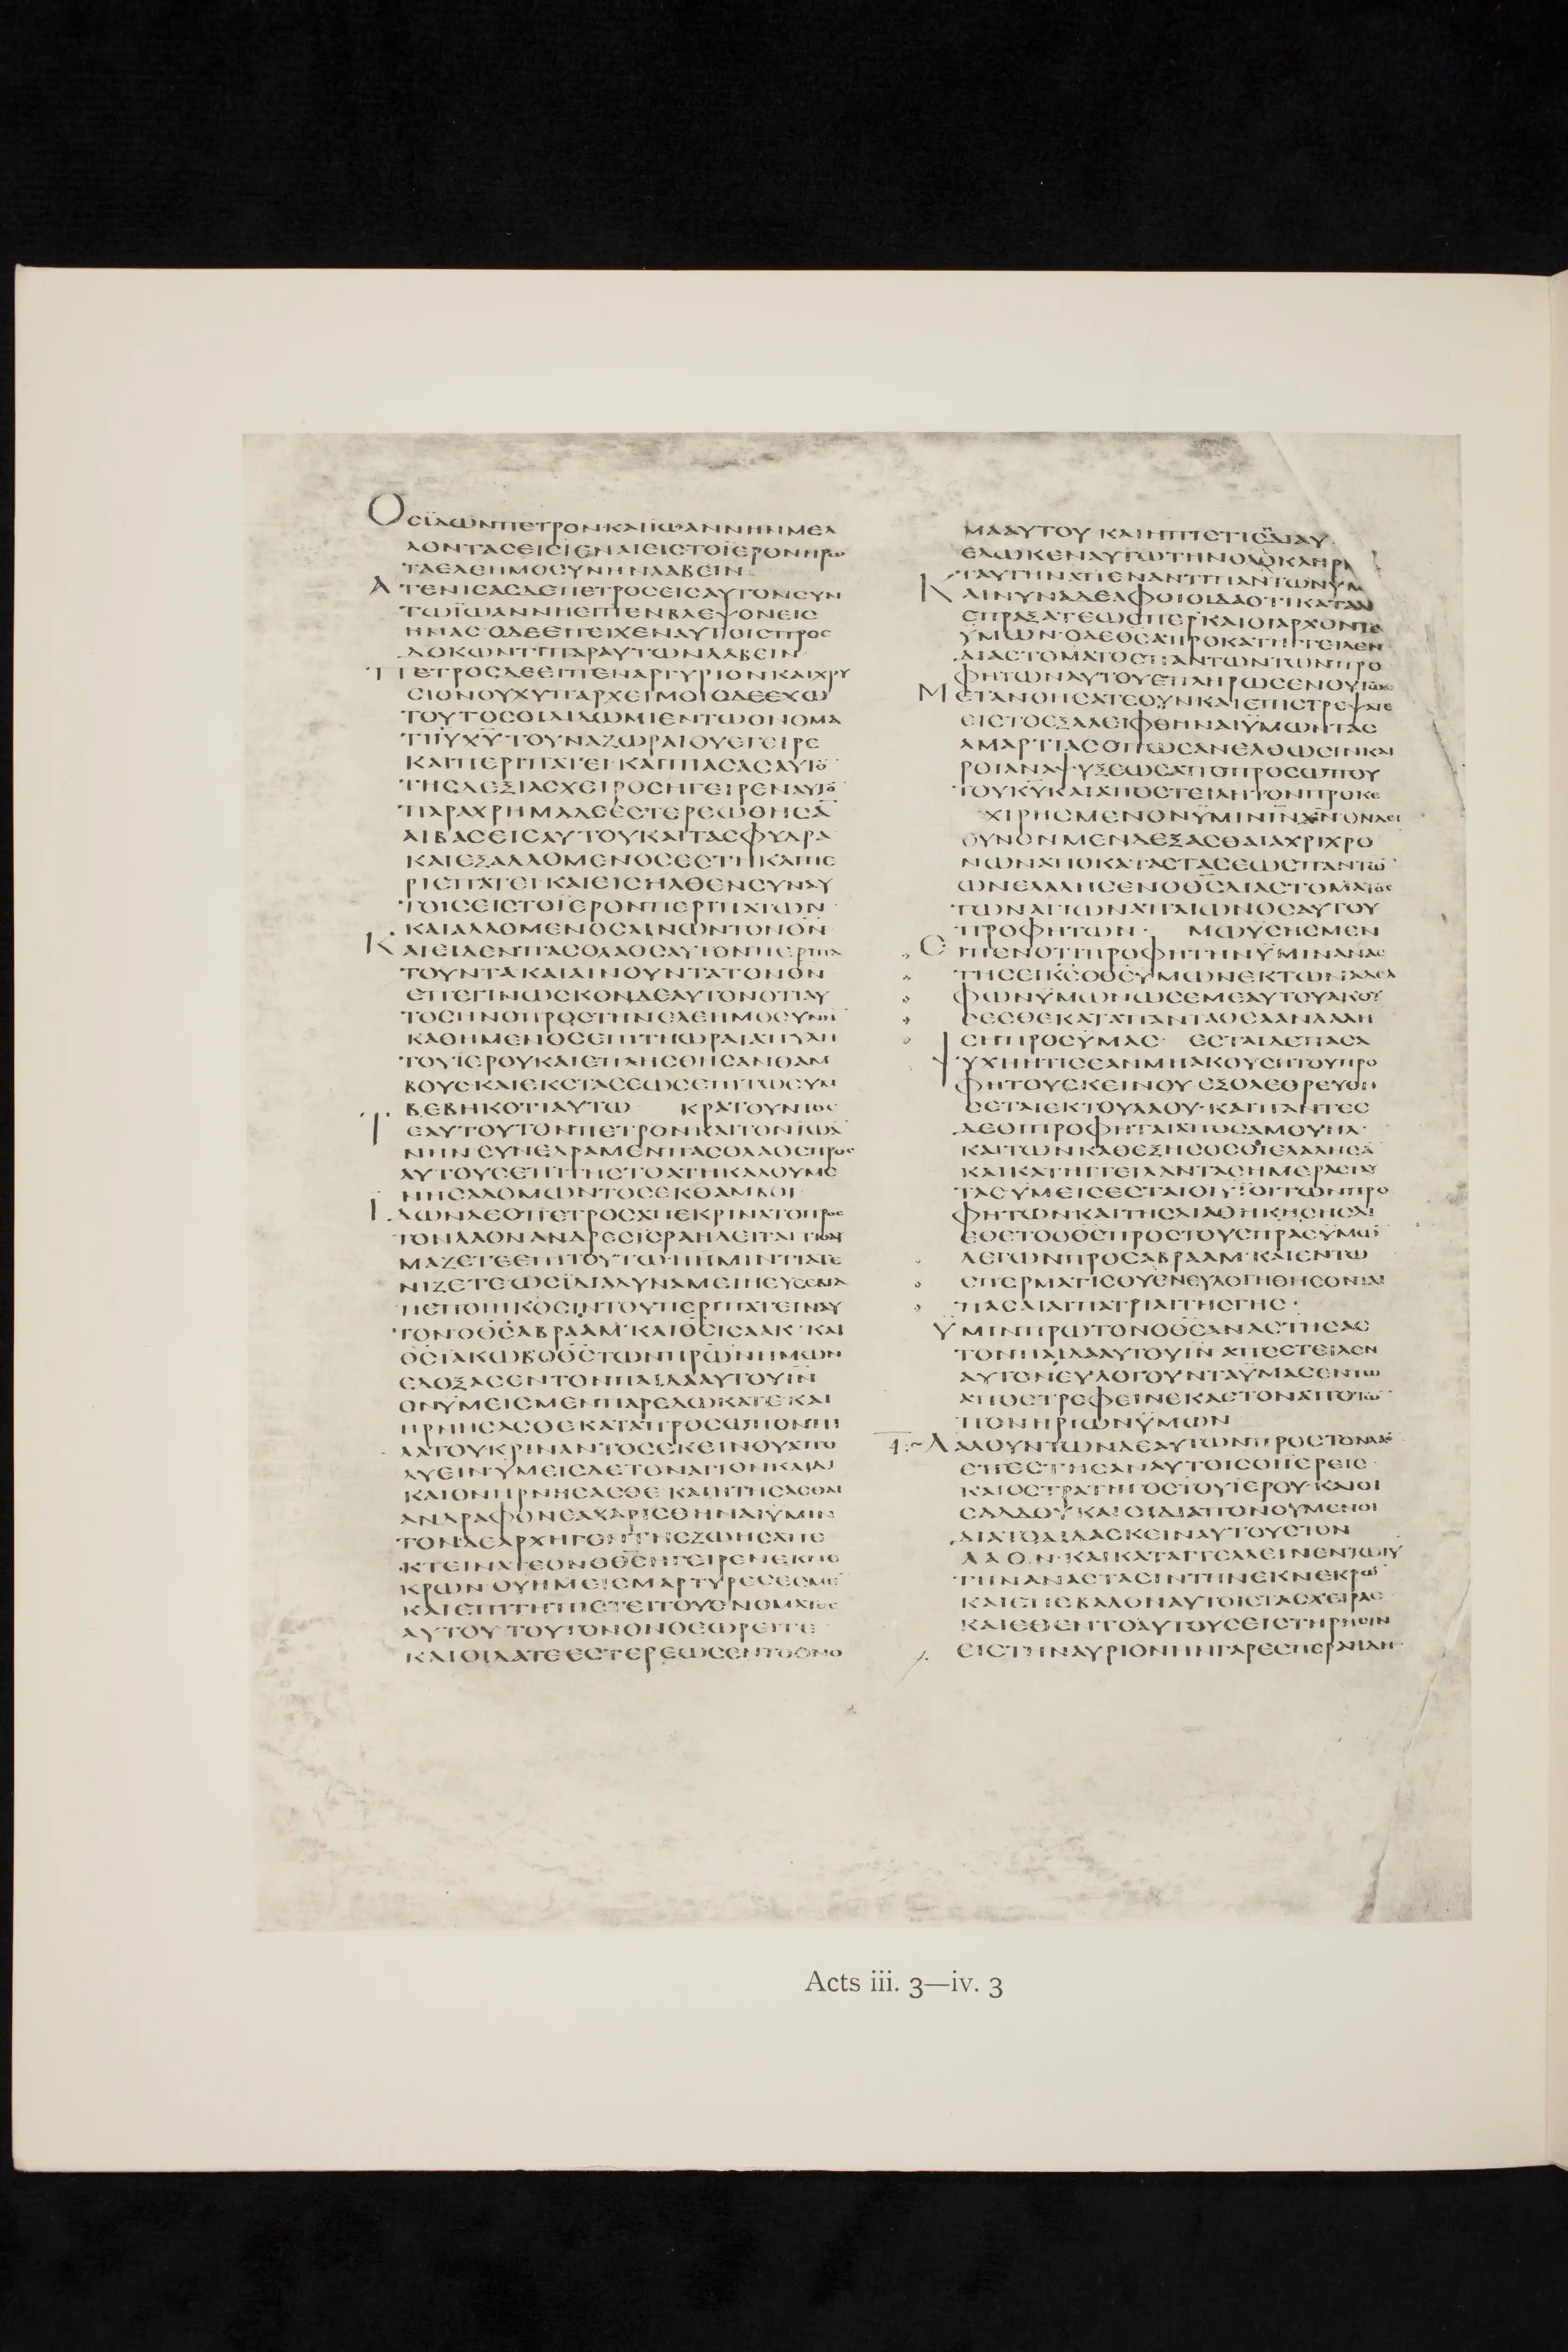 ΟϹΪΔΩΝΠΕΤΡΟΝΚΑΙΪΩΑΝΝΗΝΜΕΛ
ΛΟΝΤΑϹΕΙϹΙΕΝΑΙΕΙϹΤΟΪΕΡΟΝΗΡΩ
ΤΑΕΛΕΗΜΟϹΥΝΗΝΛΑΒΕΙΝ
ΑΤΕΝΙϹΑϹΔΕΠΕΤΡΟϹΕΙϹΑΥΤΟΝϹΥΝ
ΤΩΪΩΑΝΝΗΕΙΠΕΝΒΛΕΨΟΝΕΙϹ
ΗΜΑϹ·ΟΔΕΕΠΕΙΧΕΝΑΥΤΟΙϹΠΡΟϹ
ΔΟΚΩΝΤΙΠΑΡΑΥΤΩΝΛΑΒΕΙΝ
ΠΕΤΡΟϹΔΕΕΙΠΕΝΑΡΓΥΡΙΟΝΚΑΙΧΡΥ
ϹΙΟΝΟΥΧΥΠΑΡΧΕΙΜΟΙΟΔΕΕΧΩ
ΤΟΥΤΟϹΟΙΔΙΔΩΜΙΕΝΤΩΟΝΟΜΑ
ΤΙΙΥΧΥΤΟΥΝΑΖΩΡΑΙΟΥΕΓΕΙΡΕ
ΚΑΙΠΕΡΙΠΑΤΕΙ·ΚΑΙΠΙΑϹΑϹΑΥΤΟ
ΤΗϹΔΕΞΙΑϹΧΕΙΡΟϹΗΓΕΙΡΕΝΑΥΤΟ
ΠΑΡΑΧΡΗΜΑΔΕΕϹΤΕΡΕΩΘΗϹΑ
ΑΙΒΑϹΕΙϹΑΥΤΟΥΚΑΙΤΑϹΦΥΔΡΑ
ΚΑΙΕΞΑΛΛΟΜΕΝΟϹΕϹΤΗΚΑΙΠΕ
ΡΙΕΠΑΤΕΙ·ΚΑΙΕΙϹΗΛΘΕΝϹΥΝΑΥ
ΤΟΙϹΕΙϹΤΟΪΕΡΟΝΠΕΡΙΠΑΤΩΝ
ΚΑΙΑΛΛΟΜΕΝΟϹΑΙΝΩΝΤΟΝΘΝ
ΚΑΙΕΙΔΕΝΠΑϹΟΛΑΟϹΑΥΤΟΝΠΕΡΙΠΑ
ΤΟΥΝΤΑΚΑΙΑΙΝΟΥΝΤΑΤΟΝΘΝ
ΕΠΕΓΙΝΩϹΚΟΝΔΕΑΥΤΟΝΟΤΙΑΥ
ΤΟϹΗΝΟΠΡΟϹΤΗΝΕΛΕΗΜΟϹΥΝΗ
ΚΑΘΗΜΕΝΟϹΕΠΙΤΗΩΡΑΙΑΠΥΛΗ
ΤΟΥΪΕΡΟΥΚΑΙΕΠΛΗϹΘΗϹΑΝΘΑΜ
ΒΟΥϹ·ΚΑΙΕΚϹΤΑϹΕΩϹΕΠΙΤΩϹΥΜ
ΒΕΒΗΚΟΤΙΑΥΤΩ ΚΡΑΤΟΥΝΤΟϹ
ΕΑΥΤΟΥΤΟΝΠΕΤΡΟΝΚΑΙΤΟΝΪΩΑ
ΝΗΝϹΥΝΕΔΡΑΜΕΝΠΑϹΟΛΑΟϹΠΡΟϹ
ΑΥΤΟΥϹΕΠΙΤΗϹΤΟΑΤΗΚΑΛΟΥΜΕ
ΝΗϹΑΛΟΜΩΝΤΟϹΕΚΘΑΜΒΟΙ
ΪΔΩΝΔΕΟΠΕΤΡΟϹΑΠΕΚΡΙΝΑΤΟΠΡΟϹ
ΤΟΝΛΑΟΝΑΝΔΡΕϹΪϹΡΑΗΛΕΙΤΑΙΤΙΘΑΥ
ΜΑΖΕΤΕΕΠΙΤΟΥΤΩΗΗΜΙΝΤΙΑΤΕ
ΝΙΖΕΤΕΩϹΪΔΙΑΔΥΝΑΜΕΙΗΕΥϹΕΒΙΑ
ΠΕΠΟΙΗΚΟϹΙΝΤΟΥΠΕΡΙΠΑΤΕΙΝΑΥ
ΤΟΝ·ΟΘϹΑΒΡΑΑΜ·ΚΑΙΘϹΙϹΑΑΚ·ΚΑΙ
ΘϹΪΑΚΩΒΟΘϹΤΩΝΠΡΩΝΗΜΩΝ
ΕΔΟΞΑϹΕΝΤΟΝΠΑΙΔΑΑΥΤΟΥΙΝ
ΟΝΥΜΕΙϹΜΕΝΠΑΡΕΔΩΚΑΤΕ·ΚΑΙ
ΗΡΝΗϹΑϹΘΕΚΑΤΑΠΡΟϹΩΠΟΝΠΙ
ΛΑΤΟΥΚΡΙΝΑΝΤΟϹΕΚΕΙΝΟΥΑΠΟ
ΛΥΕΙΝΥΜΕΙϹΔΕΤΟΝΑΓΙΟΝΚΑΙΔΙ
ΚΑΙΟΝΗΡΝΗϹΑϹΘΕ·ΚΑΙΗΤΗϹΑϹΘΑΙ
ΑΝΔΡΑΦΟΝΕΑΧΑΡΙϹΘΗΝΑΙΫΜΙΝ
ΤΟΝΔΕΑΡΧΗΓΟΝΤΗϹΖΩΗϹΑΠΕ
ΚΤΕΙΝΑΤΕΟΝΟΘϹΗΓΕΙΡΕΝΕΚΝΕ
ΚΡΩΝ·ΟΥΗΜΕΙϹΜΑΡΤΥΡΕϹΕϹΜΕ
ΚΑΙΕΠΙΤΗΠΙϹΤΕΙΤΟΥΟΝΟΜΑΤΟϹ
ΑΥΤΟΥ·ΤΟΥΤΟΝΟΝΘΕΩΡΕΙΤΕ
ΚΑΙΟΙΔΑΤΕΕϹΤΕΡΕΩϹΕΝΤΟΟΝΟ
ΜΑΑΥΤΟΥ·ΚΑΙΗΠΙϹΤΙϹΗΔΙΑΥ
ΕΔΩΚΕΝΑΥΤΩΤΗΝΟΛΟΚΛΗΡΙ
ΤΑΥΤΗΝΑΠΕΝΑΝΤΙΠΑΝΤΩΝΥΜ
ΚΑΙΝΥΝΑΔΕΛΦΟΙΟΙΔΑΟΤΙΚΑΤΑΑΓ
ΕΠΡΑΞΑΤΕΩϹΠΕΡΚΑΙΟΙΑΡΧΟΝΤΕ
ΫΜΩΝ·ΟΔΕΘϹΑΠΡΟΚΑΤΗΓΓΕΙΛΕΝ
ΔΙΑϹΤΟΜΑΤΟϹΠΑΝΤΩΝΤΩΝΠΡΟ
ΦΗΤΩΝΑΥΤΟΥΕΠΛΗΡΩϹΕΝΟΥΤΩϹ
ΜΕΤΑΝΟΗϹΑΤΕΟΥΝΚΑΙΕΠΙϹΤΡΕΨΑΤΕ
ΕΙϹΤΟΕΞΑΛΕΙΦΘΗΝΑΙΫΜΩΝΤΑϹ
ΑΜΑΡΤΙΑϹΟΠΩϹΑΝΕΛΘΩϹΙΝΚΑΙ
ΡΟΙΑΝΑΨΥΞΕΩϹΑΠΟΠΡΟϹΩΠΟΥ
ΤΟΥΚΥΚΑΙΑΠΟϹΤΕΙΛΗΤΟΝΠΡΟΚΕ
ΧΙΡΗϹΜΕΝΟΝΫΜΙΝΙΝΧΝΟΝΔΕΙ
ΟΥΝΟΝΜΕΝΔΕΞΑϹΘΑΙΑΧΡΙΧΡΟ
ΝΩΝΑΠΟΚΑΤΑϹΤΑϹΕΩϹΠΑΝΤΩ
ΩΝΕΛΑΛΗϹΕΝΟΘϹΔΙΑϹΤΟΜΑΤΟϹ
ΤΩΝΑΓΙΩΝΑΠΑΙΩΝΟϹΑΥΤΟΥ
ΠΡΟΦΗΤΩΝ· ΜΩΥϹΗϹΜΕΝ
ΕΙΠΕΝΟΤΙΠΡΟΦΗΤΗΝΫΜΙΝΑΝΑϹ
ΤΗϹΕΙΚϹΟΘϹΥΜΩΝΕΚΤΩΝΑΔΕΛ
ΦΩΝΫΜΩΝΩϹΕΜΕΑΥΤΟΥΑΚΟΥ
ϹΕϹΘΕΚΑΤΑΠΑΝΤΑΟϹΑΑΝΛΑΛΗ
ϹΗΠΡΟϹΥΜΑϹ· ΕϹΤΑΙΔΕΠΑϹΑ
ΨΥΧΗΗΤΙϹΕΑΝΜΗΑΚΟΥϹΗΤΟΥΠΡΟ
ΦΗΤΟΥΕΚΕΙΝΟΥ·ΕΞΟΛΕΘΡΕΥΘΗ
ϹΕΤΑΙΕΚΤΟΥΛΑΟΥ·ΚΑΙΠΑΝΤΕϹ
ΔΕΟΙΠΡΟΦΗΤΑΙΑΠΟϹΑΜΟΥΗΛ·
ΚΑΙΤΩΝΚΑΘΕΞΗϹΟϹΟΙΕΛΑΛΗϹΑ
ΚΑΙΚΑΤΗΓΓΕΙΛΑΝΤΑϹΗΜΕΡΑϹΤΑΥ
ΤΑϹΥΜΕΙϹΕϹΤΑΙΟΙΥΪΟΙΤΩΝΠΡΟ
ΦΗΤΩΝΚΑΙΤΗϹΔΙΑΘΗΚΗϹΗϹΔΙ
ΕΘΕΤΟΟΘϹΠΡΟϹΤΟΥϹΠΡΑϹΫΜΩ
ΛΕΓΩΝΠΡΟϹΑΒΡΑΑΜ·ΚΑΙΕΝΤΩ
ϹΠΕΡΜΑΤΙϹΟΥΕΝΕΥΛΟΓΗΘΗϹΟΝΤΑΙ
ΠΑϹΑΙΑΙΠΑΤΡΙΑΙΤΗϹΓΗϹ·
ΫΜΙΝΠΡΩΤΟΝΟΘϹΑΝΑϹΤΗϹΑϹ
ΤΟΝΠΑΙΔΑΑΥΤΟΥΙΝΑΠΕϹΤΕΙΛΕΝ
ΑΥΤΟΝΕΥΛΟΓΟΥΝΤΑΫΜΑϹΕΝΤΩ
ΑΠΟϹΤΡΕΦΕΙΝΕΚΑϹΤΟΝΑΠΟΤΩ
ΠΟΝΗΡΙΩΝΫΜΩΝ
ΛΑΛΟΥΝΤΩΝΔΕΑΥΤΩΝΠΡΟϹΤΟΝΛΑΟ
ΕΠΕϹΤΗϹΑΝΑΥΤΟΙϹΟΙΪΕΡΕΙϹ·
ΚΑΙΟϹΤΡΑΤΗΓΟϹΤΟΥΪΕΡΟΥ·ΚΑΙΟΙ
ϹΑΔΔΟΥΚΑΙΟΙΔΙΑΠΟΝΟΥΜΕΝΟΙ
ΔΙΑΤΟΔΙΔΑϹΚΕΙΝΑΥΤΟΥϹΤΟΝ
ΛΑΟΝ·ΚΑΙΚΑΤΑΓΓΕΛΛΕΙΝΕΝΤΩΙΥ
ΤΗΝΑΝΑϹΤΑϹΙΝΤΗΝΕΚΝΕΚΡΩ
ΚΑΙΕΠΕΒΑΛΟΝΑΥΤΟΙϹΤΑϹΧΕΙΡΑϹ
ΚΑΙΕΘΕΝΤΟΑΥΤΟΥϹΕΙϹΤΗΡΗϹΙΝ
ΕΙϹΤΗΝΑΥΡΙΟΝΗΝΓΑΡΕϹΠΕΡΑΗΔΗ
Acts iii. 3—iv. 3